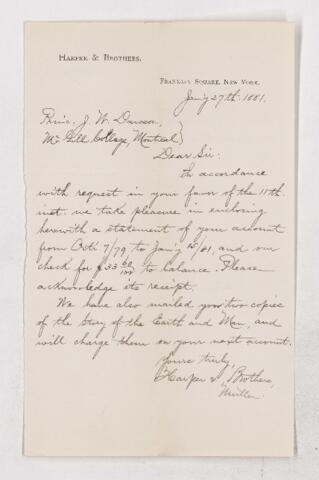 HARPER & BROTHERS.
FRANKLIN SQUARE, NEW YORK.
Jan'y 27th. 1881.
Princ. J. W. Dawson,
McGill College, Montreal}
Dear Sir:
In accordance
with request in your favor of the 11th.
inst. we take pleasure in enclosing
herewith a statement of your account
from Oct. 7/79 to Jan'y /81, and our
check for $33 60/100 to balance. Please
acknowledge its receipt.
We have also mailed you two copies
of the Story of the Earth and Man, and
will charge them on your next account.
Yours truly,
Harper & Brothers,